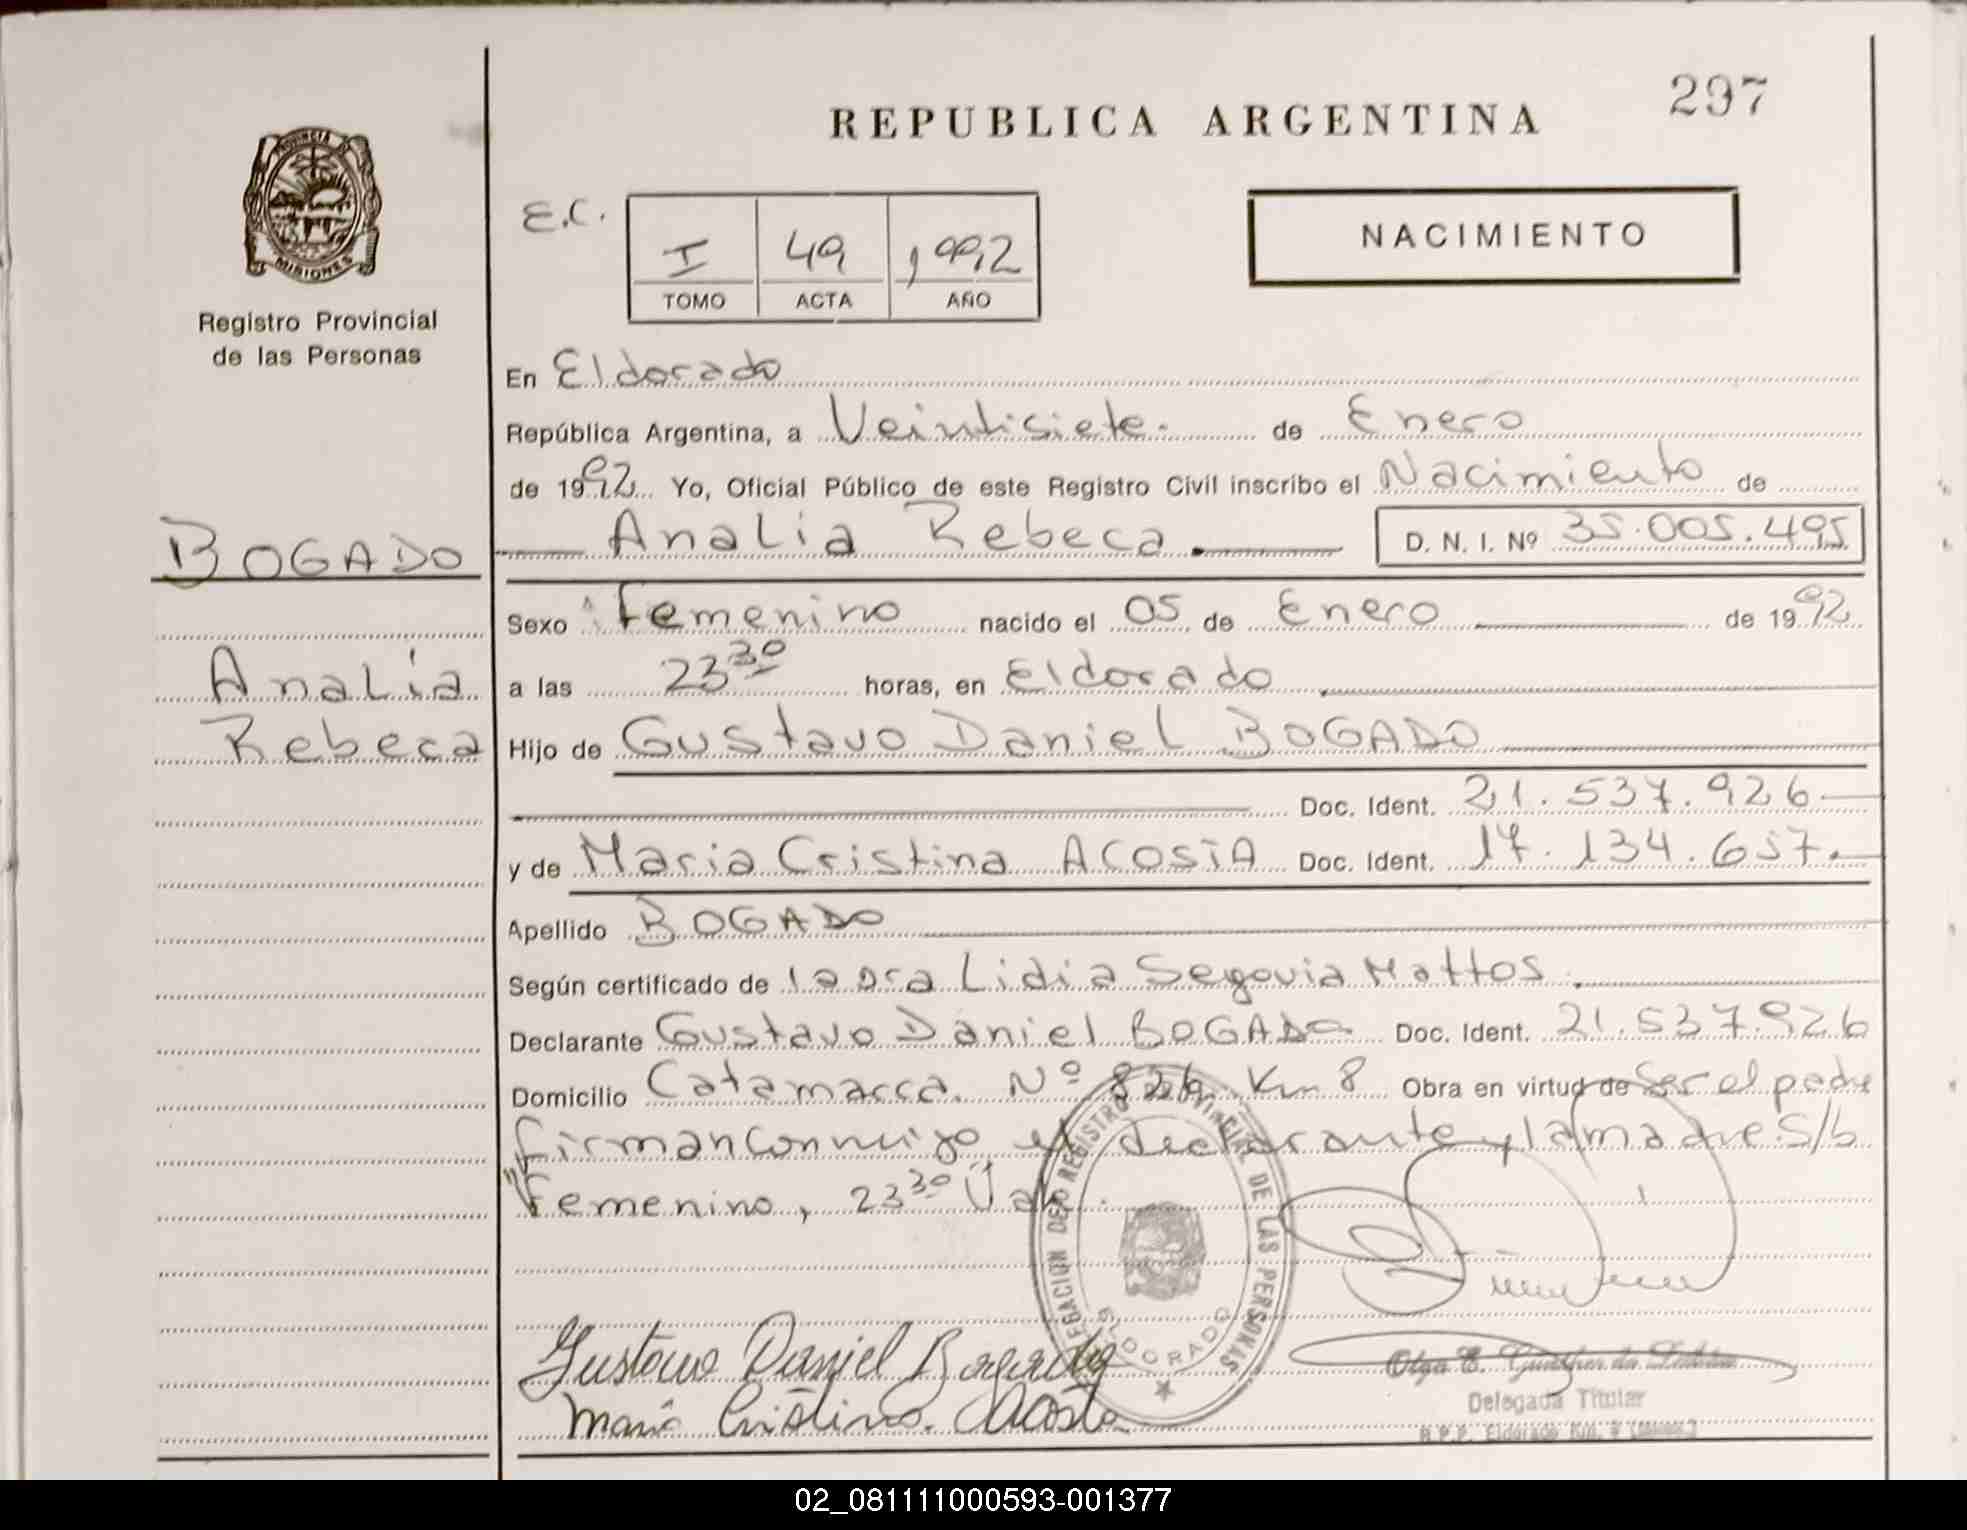 297
REPUBLICA ARGENTINA
PROVINCIA DE
MISIONES
Registro Provincial
de las Personas
E.C.
I 49 1,992
TOMO ACTA AÑO
NACIMIENTO
En Eldorado
República Argentina, a Veintisiete. de Enero
de 1992 Yo, Oficial Público de este Registro Civil inscribo el Nacimiento de
BOGADO
Analia Rebeca. D. N. I. Nº 35.005.495
Sexo Femenino nacido el 05 de Enero de 1992
Analía
a las 23 30 horas, en Eldorado
Rebeca
Hijo de Gustavo Daniel BOGADO
Doc. Ident. 21.537.926
y de Maria Cristina ACOSTA Doc. Ident. 17.134.657.
Apellido BOGADO
Según certificado de la Dra Lidia Segovia Mattos.
Declarante Gustavo Daniel BOGADO Doc. Ident. 21.537.926
Domicilio Catamarca. Nº 826. Km 8 Obra en virtud de ser el padre
firman conmigo el declarante y la madre. S/b
"Femenino, 23 30 Vale.
DELEGACION DEL REGISTRO PROVINCIAL DE LAS PERSONAS
ELDORADO
Gustavo Daniel Bogado
Maria Cristina Acosta
Olga E.
Delegada Titular
R.P.P. Eldorado Km.
02_081111000593-001377